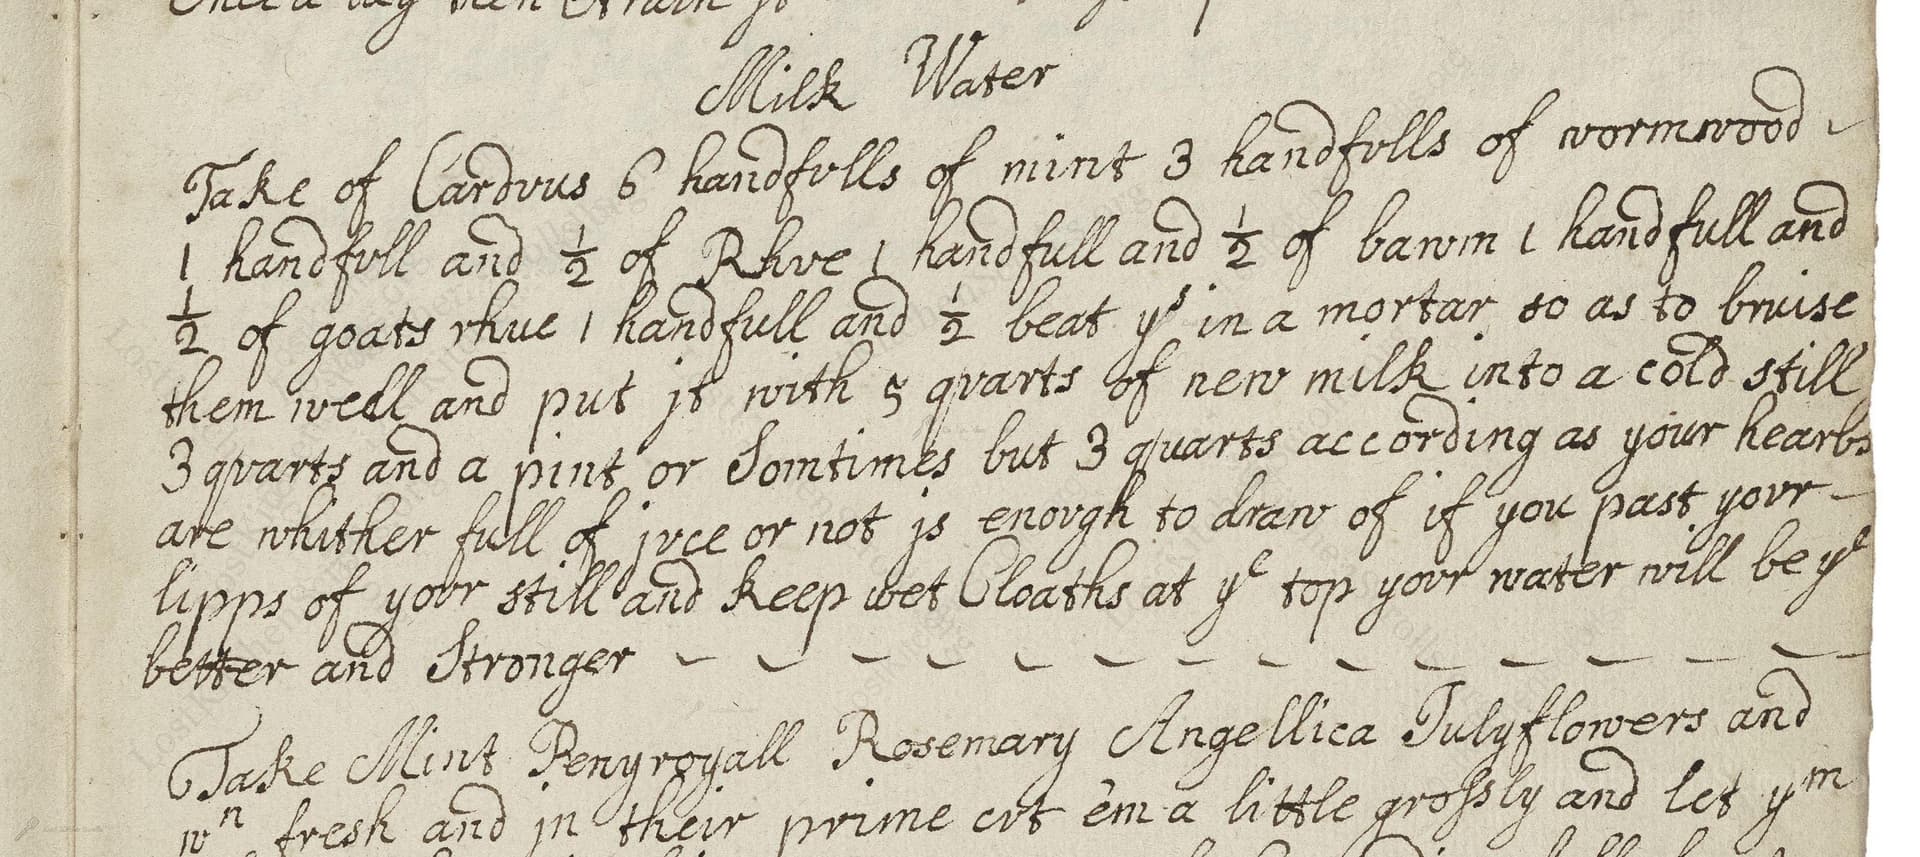 then strain it
Milk Water
Take of Cardvus 6 handfvlls of mint 3 handfvlls of wormwood
1 handfvll and 1/2 of Rhve 1 handfull and 1/2 of bawm 1 handfull and
1/2 of goats rhue 1 handfull and 1/2 beat yˢ in a mortar so as to brvise
them well and put jt with 5 qvarts of new milk into a cold still
3 qvarts and a pint or Somtimes but 3 quarts according as your hearbs
are whither full of jvce or not js enovgh to draw of if you past yovr
lipps of yovr still and keep wet Cloaths at yᵉ top yovr water will be yᵉ
better and Stronger
Take Mint Penyroyall Rosemary Angellica Julyflowers and
wⁿ fresh and jn their prime cvt em a little grossly and let yᵐ